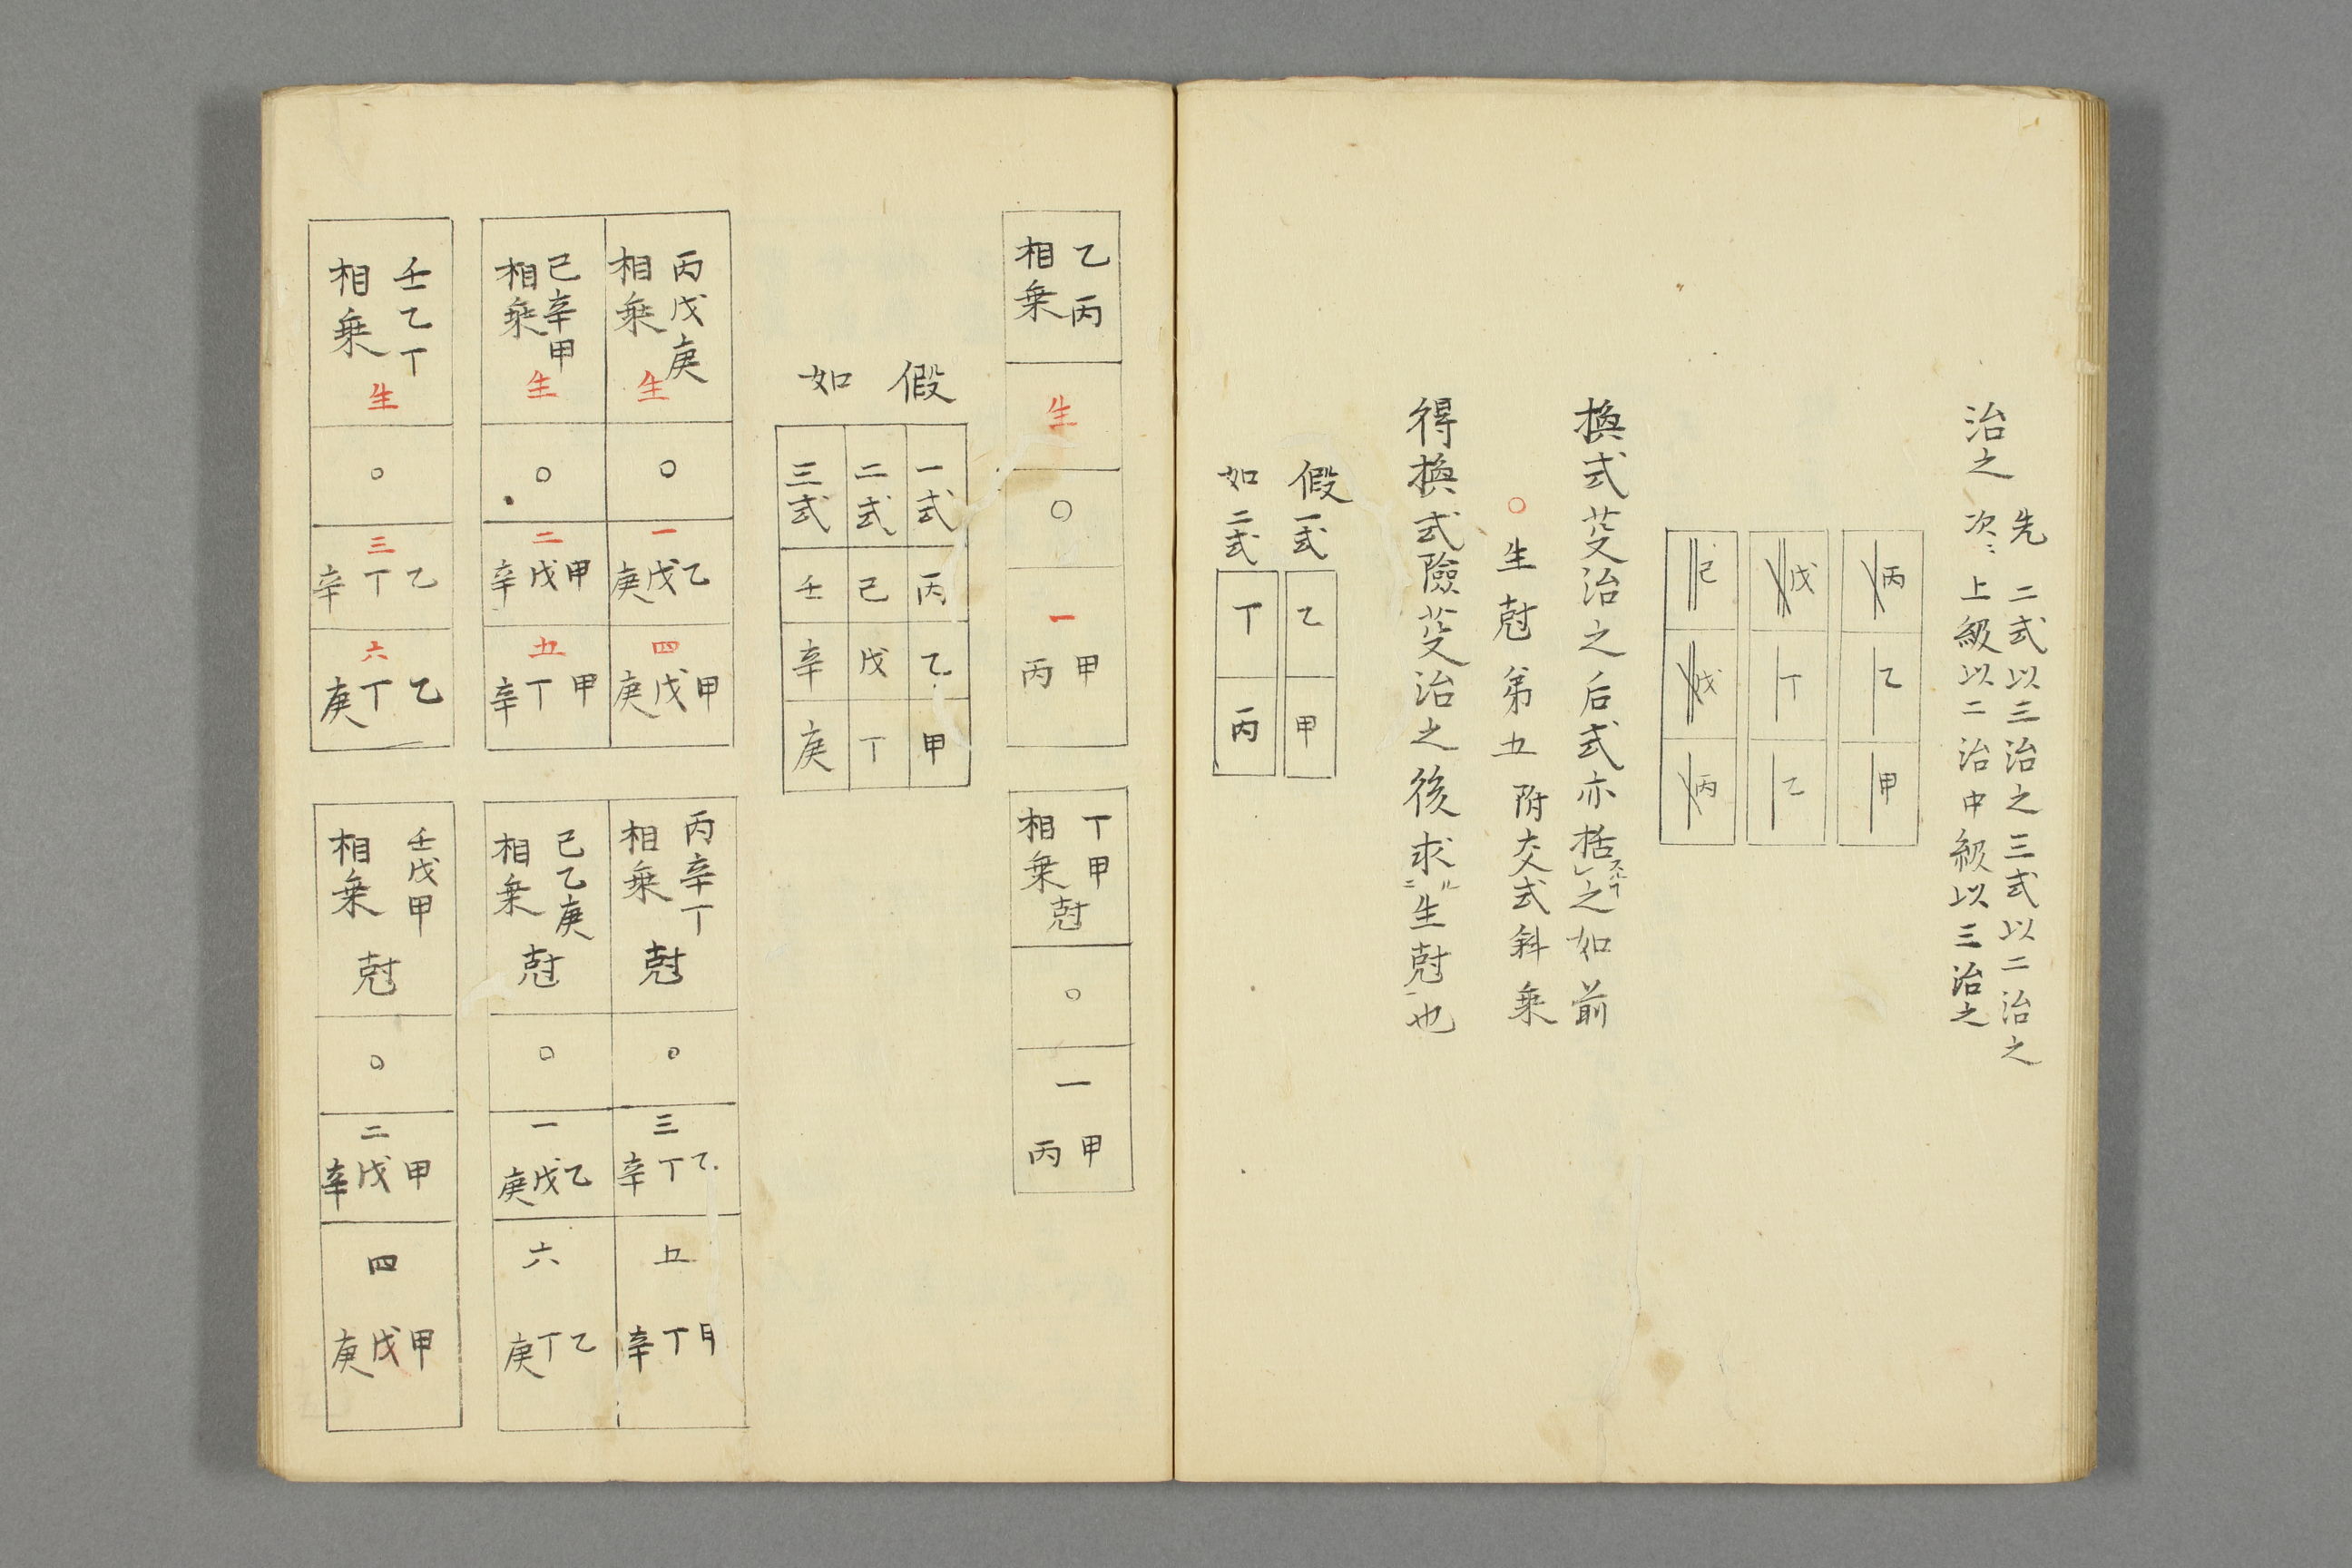 治之 先二式以三治之三式以二治之
次〻上級以二治中級以三治之
丙 乙 甲
戊 丁 乙
己 戊 丙
換式芟治之后式亦括スルヿ之如前
○生尅第五 附交式斜乗
得換式險芟治之後求ルニ生尅ヲ也
假如
一式 乙 甲
二式 丁 丙
乙丙相乗 生 ○ 一 甲丙
丁甲相乗 尅 ○ 一 甲丙
假如
一式 丙 乙 甲
二式 己 戊 丁
三式 壬 辛 庚
丙戊庚相乗 生 ○ 一 乙戊庚 四 甲戊庚
己辛甲相乗 生 ○ 二 甲戊辛 五 甲丁辛
壬乙丁相乗 生 ○ 三 乙丁辛 六 乙丁庚
丙辛丁相乗 尅 ○ 三 乙丁辛 五 甲丁辛
己乙庚相乗 尅 ○ 一 乙戊庚 六 乙丁庚
壬戊甲相乗 尅 ○ 二 甲戊辛 四 甲戊庚